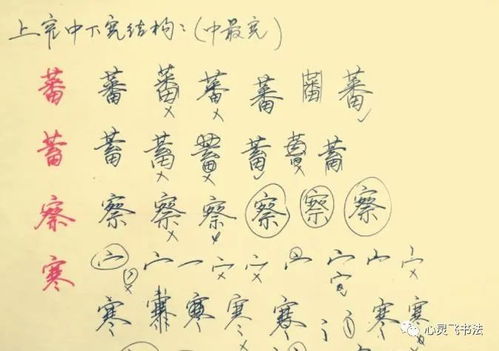 上宽中下宽结构：(中最宽)
蕃 蕃 蕃 蕃 蕃 蕃 蕃
蓄 蓄 蓄 蓄 蓄 蓄 蓄
察 察 察 察 察 察 察
寒 宀 宀 一 宀 宀 宀 宀 宀 宀
寒 寒 寒 寒 寒 寒 寒
心灵飞书法